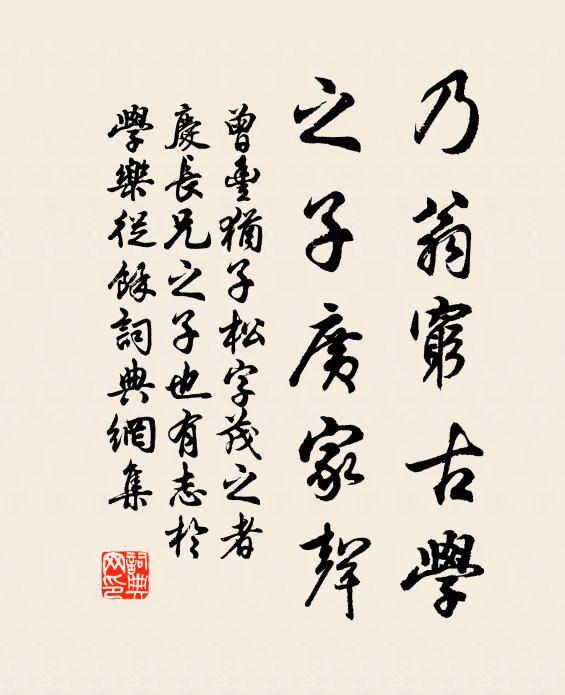 乃翁窮古學
之子廣家聲
曾豐猶子松字茂之者
慶長兄之子也有志於
學樂從餘詞典網集
詞典网印